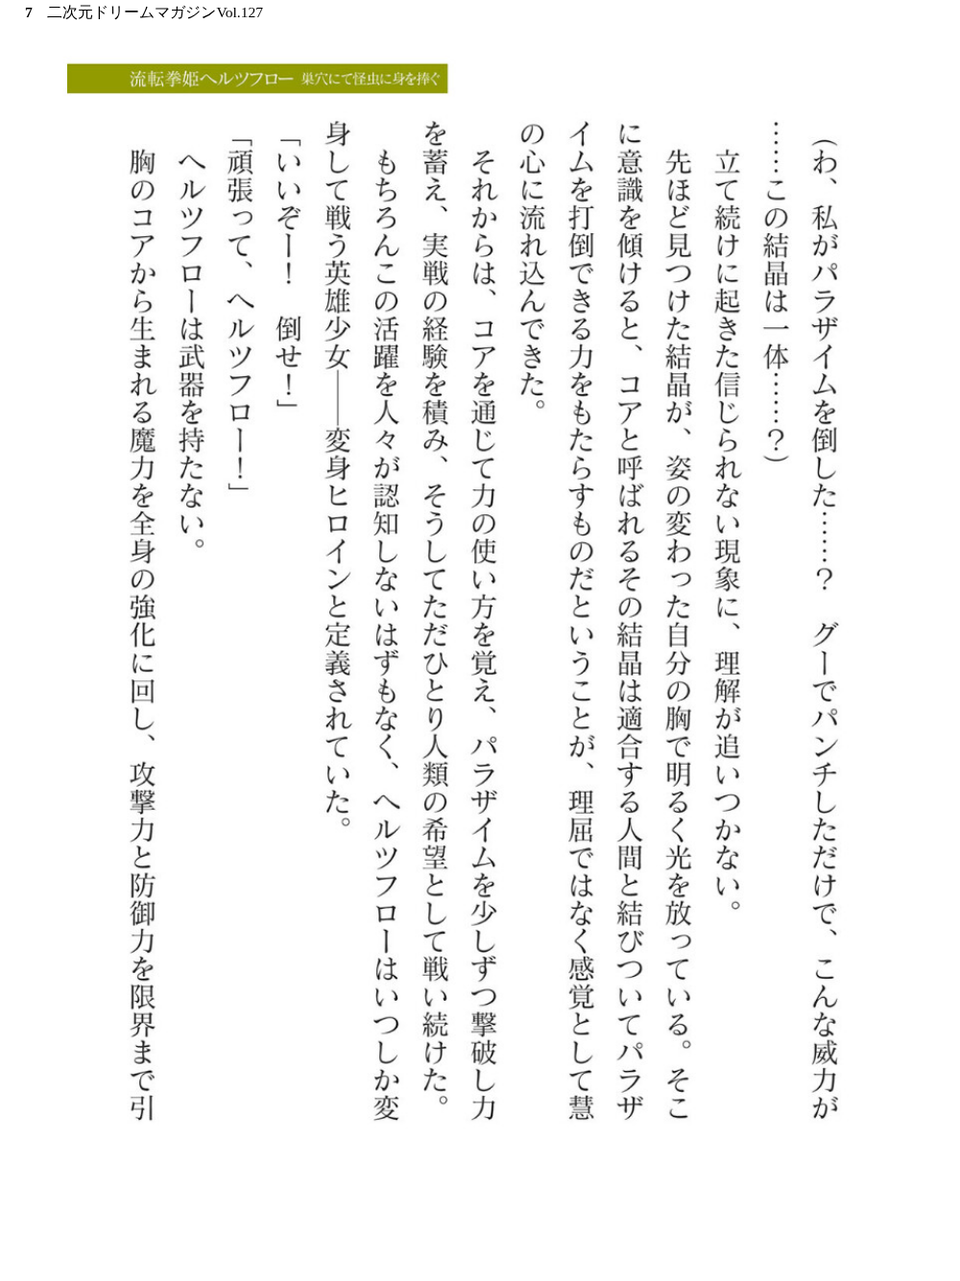 7 二次元ドリームマガジンVol.127
流転拳姫ヘルツフロー 巣穴にて怪虫に身を捧ぐ
（わ、私がパラザイムを倒した……？　グーでパンチしただけで、こんな威力が
……この結晶は一体……？）
　立て続けに起きた信じられない現象に、理解が追いつかない。
　先ほど見つけた結晶が、姿の変わった自分の胸で明るく光を放っている。そこ
に意識を傾けると、コアと呼ばれるその結晶は適合する人間と結びついてパラザ
イムを打倒できる力をもたらすものだということが、理屈ではなく感覚として慧
の心に流れ込んできた。
　それからは、コアを通じて力の使い方を覚え、パラザイムを少しずつ撃破し力
を蓄え、実戦の経験を積み、そうしてただひとり人類の希望として戦い続けた。
　もちろんこの活躍を人々が認知しないはずもなく、ヘルツフローはいつしか変
身して戦う英雄少女――変身ヒロインと定義されていた。
「いいぞー！　倒せ！」
「頑張って、ヘルツフロー！」
　ヘルツフローは武器を持たない。
　胸のコアから生まれる魔力を全身の強化に回し、攻撃力と防御力を限界まで引